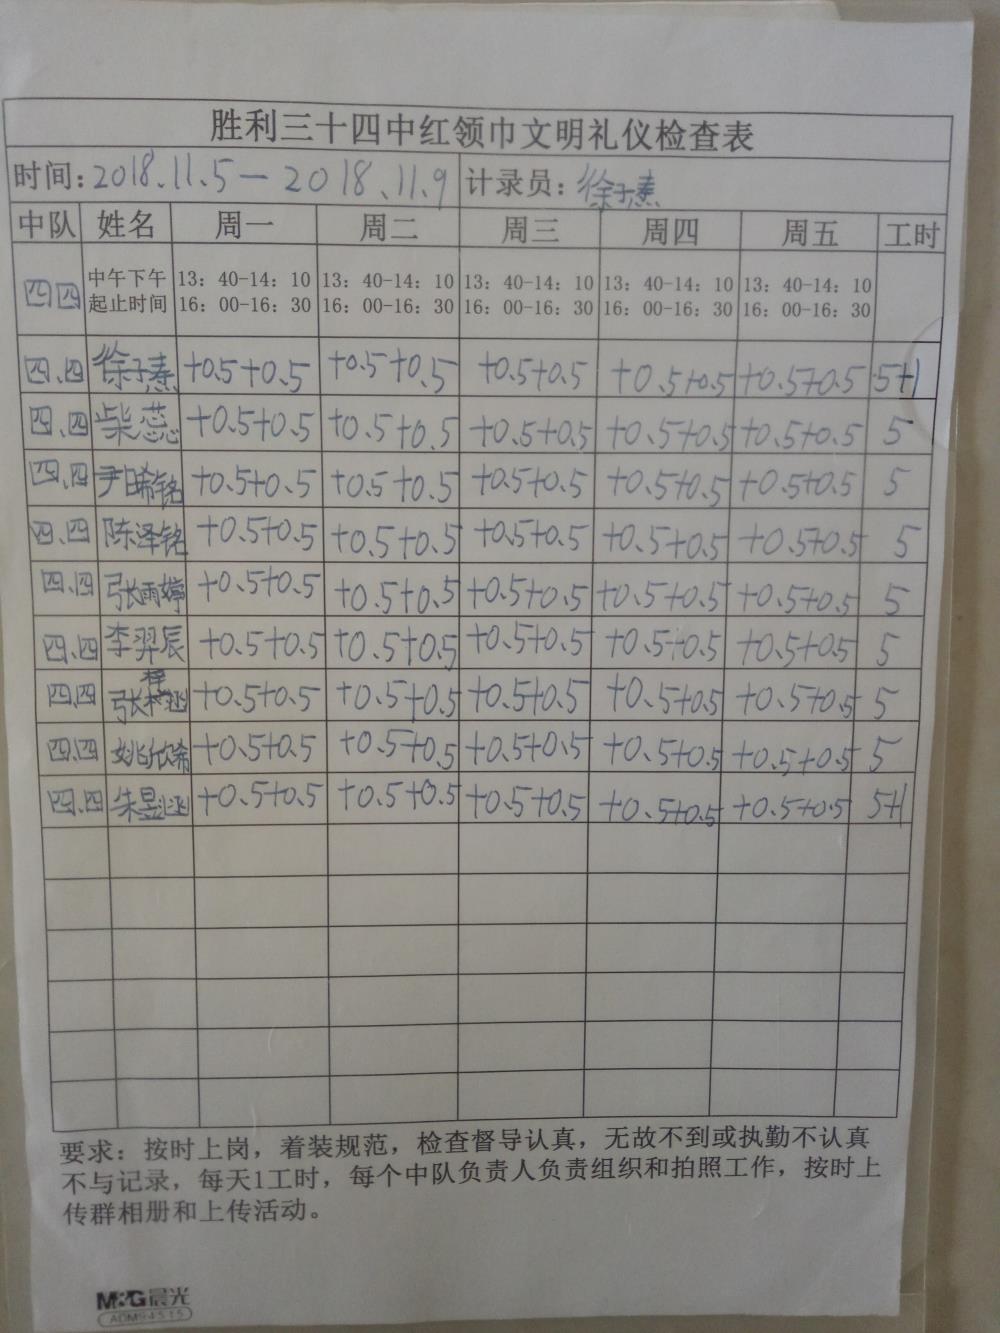 胜利三十四中红领巾文明礼仪检查表
时间：2018.11.5－2018.11.9 计录员：徐子熹
中队 姓名 周一 周二 周三 周四 周五 工时
四四 中午下午起止时间 13：40-14：10 13：40-14：10 13：40-14：10 13：40-14：10 13：40-14：10
16：00-16：30 16：00-16：30 16：00-16：30 16：00-16：30 16：00-16：30
四.四 徐子熹 +0.5+0.5 +0.5+0.5 +0.5+0.5 +0.5+0.5 +0.5+0.5 5+1
四.四 柴蕊 +0.5+0.5 +0.5+0.5 +0.5+0.5 +0.5+0.5 +0.5+0.5 5
四.四 尹晞铭 +0.5+0.5 +0.5+0.5 +0.5+0.5 +0.5+0.5 +0.5+0.5 5
四.四 陈泽铭 +0.5+0.5 +0.5+0.5 +0.5+0.5 +0.5+0.5 +0.5+0.5 5
四.四 张雨婷 +0.5+0.5 +0.5+0.5 +0.5+0.5 +0.5+0.5 +0.5+0.5 5
四.四 李羿辰 +0.5+0.5 +0.5+0.5 +0.5+0.5 +0.5+0.5 +0.5+0.5 5
四.四 张 +0.5+0.5 +0.5+0.5 +0.5+0.5 +0.5+0.5 +0.5+0.5 5
四.四 姚欣希 +0.5+0.5 +0.5+0.5 +0.5+0.5 +0.5+0.5 +0.5+0.5 5
四.四 朱昱 +0.5+0.5 +0.5+0.5 +0.5+0.5 +0.5+0.5 +0.5+0.5 5+1
要求：按时上岗，着装规范，检查督导认真，无故不到或执勤不认真
不与记录，每天1工时，每个中队负责人负责组织和拍照工作，按时上
传群相册和上传活动。
M&G晨光
ADM94515